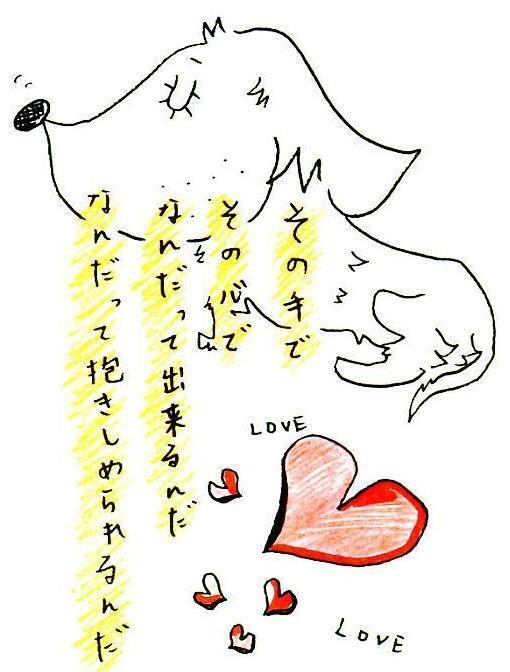 その手で
その心で
なんだって出来るんだ
なんだって抱きしめられるんだ
LOVE
LOVE